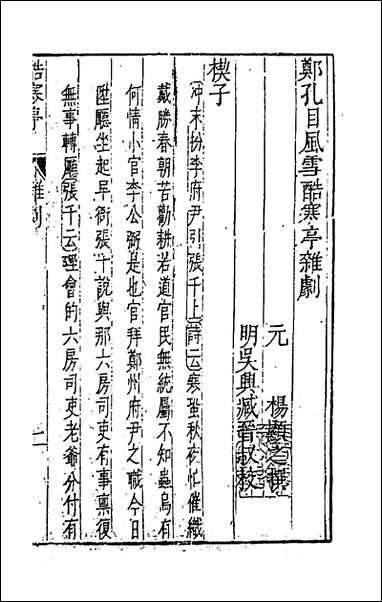 鄭孔目風雪酷寒亭雜劇
元　楊顯之撰
明吳興臧晉叔校
楔子
（冲末扮李府尹引張千上）（詩云）寒蛩秋夜忙催織
戴勝春朝苦勸耕若道官民無統屬不知蟲鳥有
何情小官李公弼是也官拜鄭州府尹之職今日
陞廳坐起早衙張千說與那六房司吏有事禀復
無事轉廳（張千云）理會的六房司吏老爺分付有
酷寒亭　雜劇　一